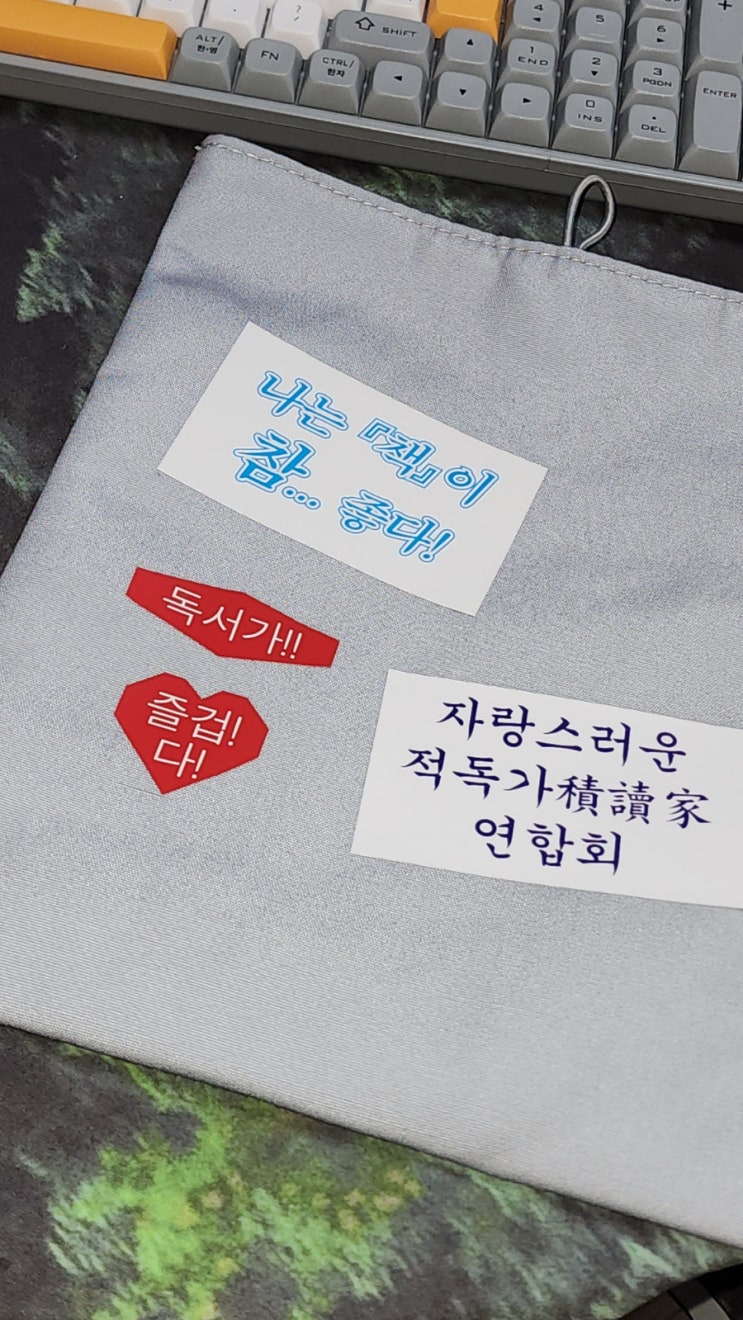 ?
ALT/
한•영
FN
CTRL/
한자
SHIFT
4
5
6
+
1
END
2
3
PGDN
ENTER
0
INS
.
DEL
나는 『책』이
참... 좋다!
독서가!!
즐겁!
다!
자랑스러운
적독가積讀家
연합회